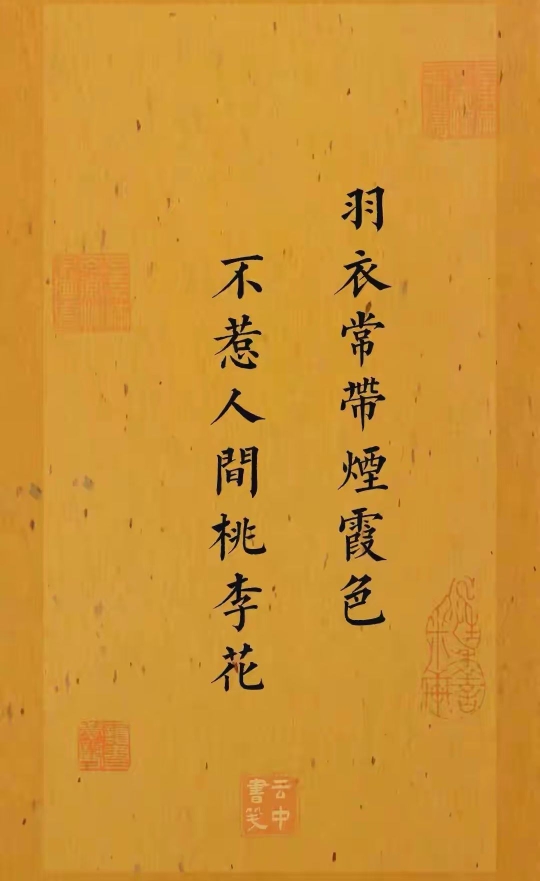 羽衣常帶煙霞色
不惹人間桃李花
云中
書笺